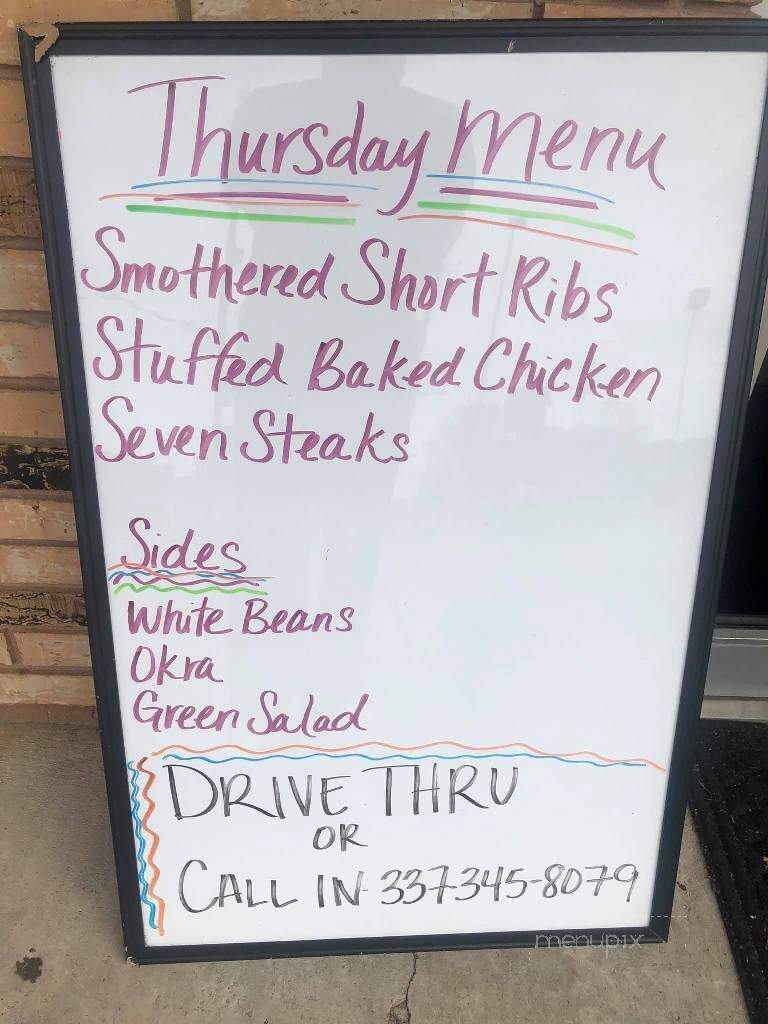 Thursday Menu
Smothered Short Ribs
Stuffed Baked Chicken
Seven Steaks
Sides
White Beans
Okra
Green Salad
DRIVE THRU
OR
CALL IN 337-345-8079
menupix